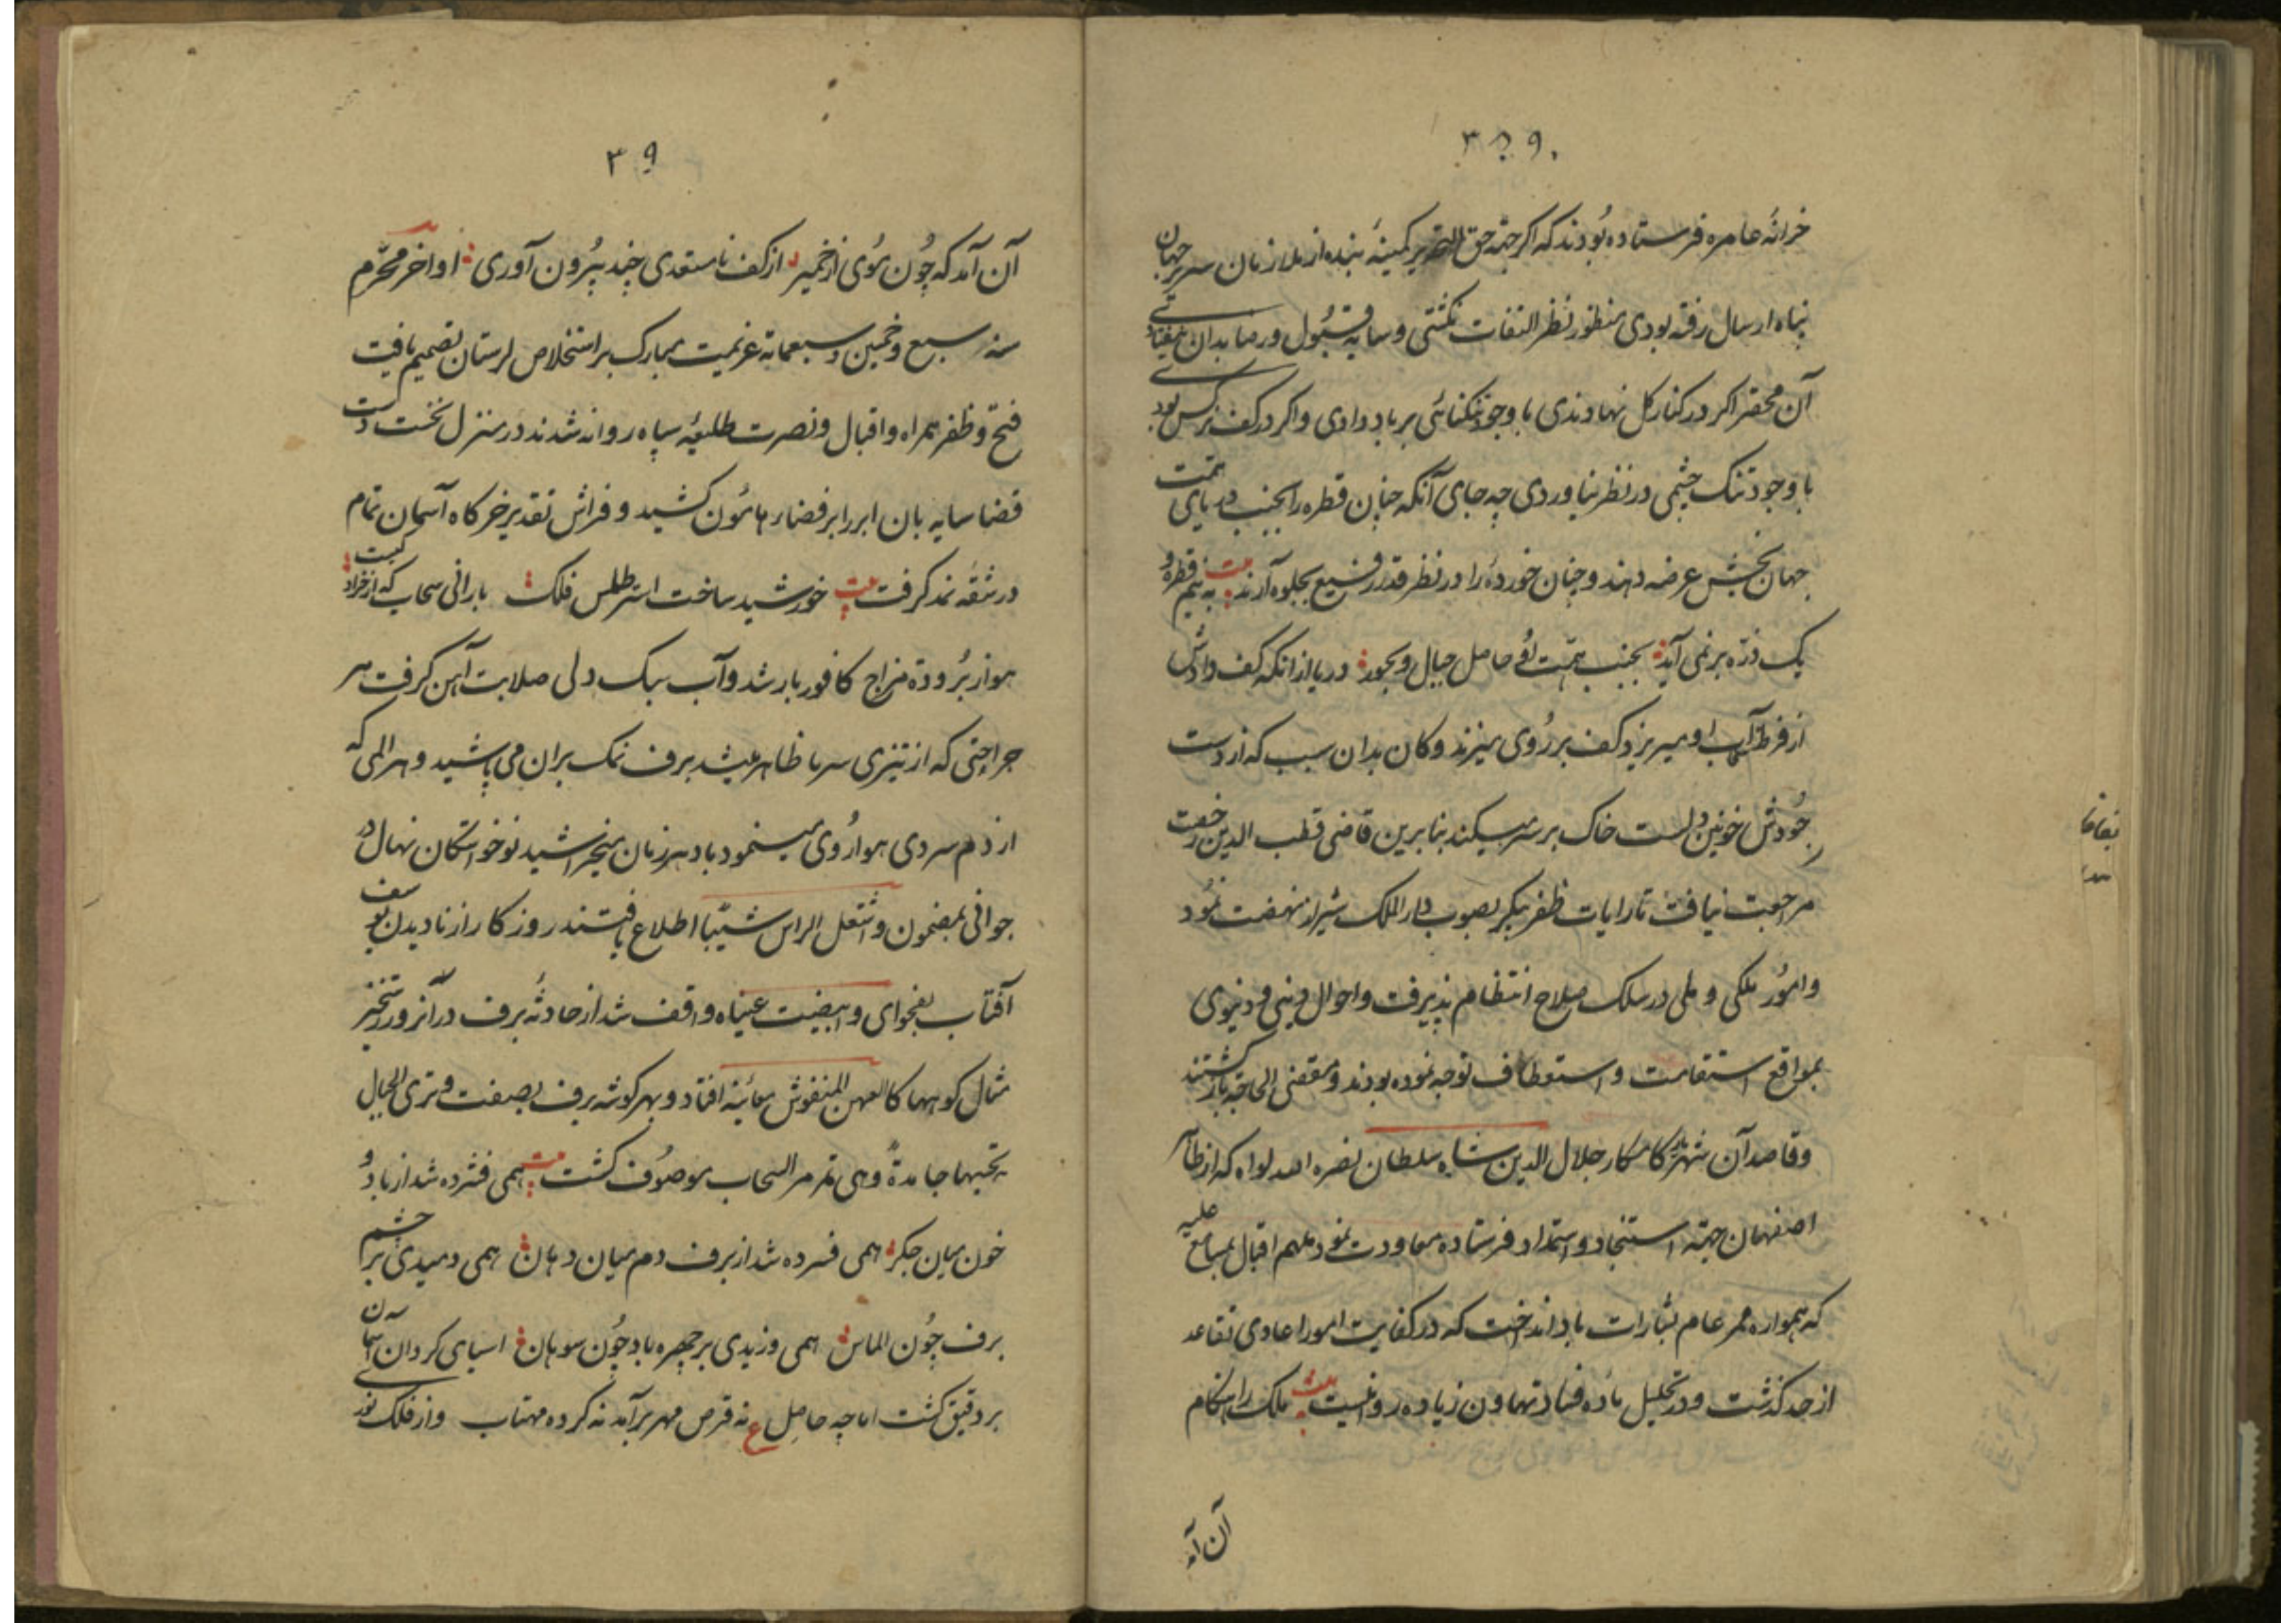 ۳۸۹
خزانهٔ عامره فرستاده بُودند که اکر جهة حق التحریر کمینهٔ بنده از ملازمان سریر جهان
پناه ارسال رفته بودی منظور نظر التفات نکشتی و سایهٔ قبُول و رضا بدان نیفتادی
آن محقر اکر در کنار کل نهادندی با وجود تنکنائی بر باد دادی و اکر در کف نرکس بودی
با وجود تنک چشمی در نظر نیاوردی چه جای آنکه چنان قطره را بجنب دریای همت
جهان بخش عرضه دهند و چنان خورده را در نظر قدر رفیع بجلوه آرند بیت به نیم قطرهٔ و
یک ذرّه بر نمی آید بجنب همّت اُو حاصل جبال و بحور دریا از انکه کف رادش
از فرط آب او میریزد کف بر رُوی میزند و کان بدان سبب که از دست
جُودش خونین دلست خاک بر سر میکند بنابرین قاضی قطب الدین رخصت
مراجعت نیافت تا رایات ظفر پیکر بصوب دار الملک شیراز نهضت نمُود
و امُور ملکی و ملی در سلک صلاح انتظام پذیرفت و احوال دینی و دنیوی
بمواقع استقامت و استعطاف توجه نموده بودند و مقضی الحاجة باز کشتند
و قاصد آن شهریار کامکار جلال الدین شاه سلطان نصره الله لواه که از ظاهر
اصفهان جهة استنجاد و استمداد فرستاده معاودت نمود ملهم اقبال بمسامع علیه
که همواره ممر عام بشارات باد انداخت که در کفایت امور اعادی تقاعد
از حد کذشت و در تحلیل مادهٔ فساد تهاون زیاده روا نیست بیت ملک را هنکام
آن آمد
۳۹
آن آمد که چُون مُوی از خمیر از کف نامستعدی چند بیرُون آوری اواخر محرّم
سنه سبع و خمسین و سبعمایة عزیمت مبارک بر استخلاص لرستان تصمیم یافت
فتح و ظفر همراه و اقبال و نصرت طلیعهٔ سپاه روانه شدند در منزل نخست دست
قضا سایه بان ابر را بر فضاء هامُون کشید و فراش تقدیر خرکاه آسمان تمام
در شقهٔ نمد کرفت بیت خورشید ساخت استر اطلس فلک بارانی سحاب که از خز ادکنست
هوا ز بُرودة مزاج کافور بار شد و آب سبک دلی صلابت آهن کرفت هر
جراحتی که از تیزی سرما ظاهر میشد برف نمک بران می پاشید و هر المی که
از دم سردی هوا رُوی مینمود باد هر زمان میخراشید نو خواستکان نهال در
جوانی بمضمون واشتعل الراس شیبًا اطلاع یافتند روز کار از نادیدن یوسف
آفتاب بفحوای وابیضت عیناه واقف شد از حادثهٔ برف در آنروز رستخیز
مثال کوهها کالعهن المنفوش معاینه افتاد و بهر کوشه برف بصفت وتری الجبال
تحسبها جامدةً وهی تمر مر السحاب موصُوف کشت بیت همی فشرده شد از باد و
خون میان جکر همی فسرده شد از برف دم میان دهان همی دمیدی بر چشم
برف چُون الماس همی وزیدی بر چهره باد چُون سوهان اسیای کردان آسمان
بر دقیق کشت اما چه حاصل ع نه قرص مهر برآمد نه کرده مهتاب و از فلک